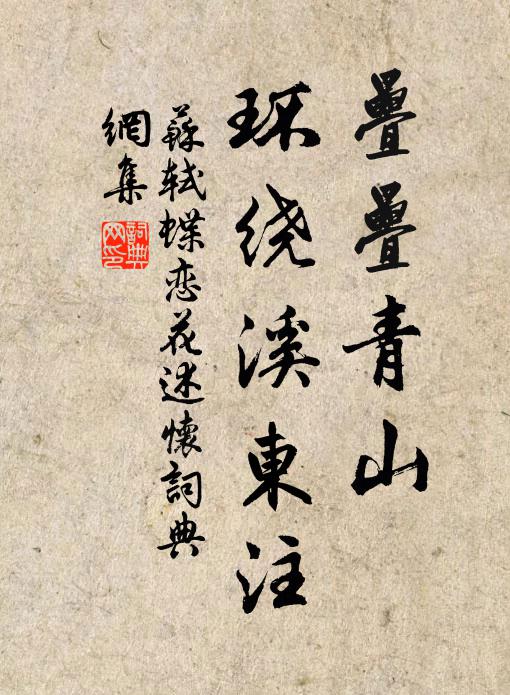 疊疊青山
环绕溪東注
蘇轼蝶恋花述懷詞典
網集
詞典
网印